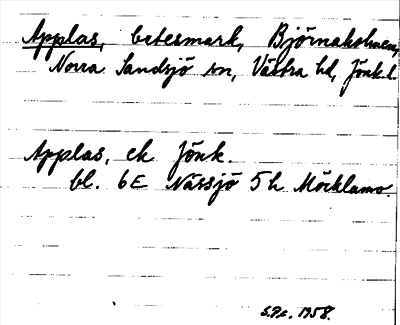 Applas, betesmark, Björnaholmen,
Norra Sandsjö sn, Västra hd, Jönk.l.
Applas, ek Jönk.
bl. 6E Nässjö 5h Möcklamo.
S.Pc. 1958.